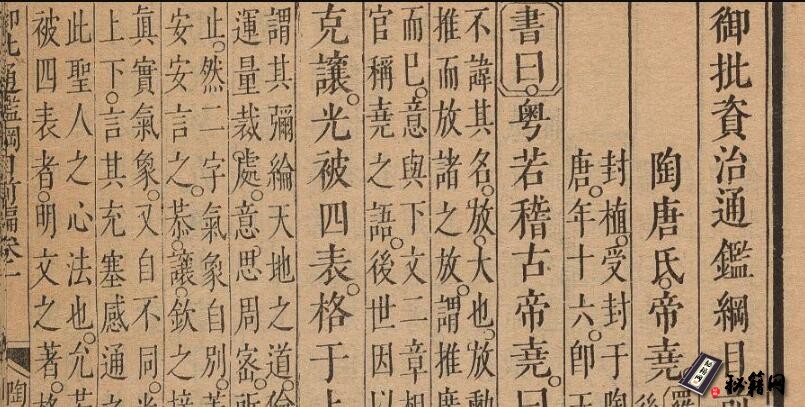 御批資治通鑑綱目
陶唐氏。帝堯。
後
封植。受封于陶
唐。年十六。即
書曰。粵若稽古帝堯。曰
不諱其名。放。大也。放勳
推而放諸之放。謂推廣
而已。意與下文二章相
官稱堯之語。後世因以
克讓。光被四表。格于上
謂其彌綸天地之道。倫
運量裁處。意思周宻。所
止。然二字氣象自別。
安安言之。恭。讓。欽之
眞實氣象。又自不同。
上下。言其充塞感通之
此聖人之心法也。允
被四表者。明文之著。格
御批通鑑綱目前編卷一
陶
秘籍网